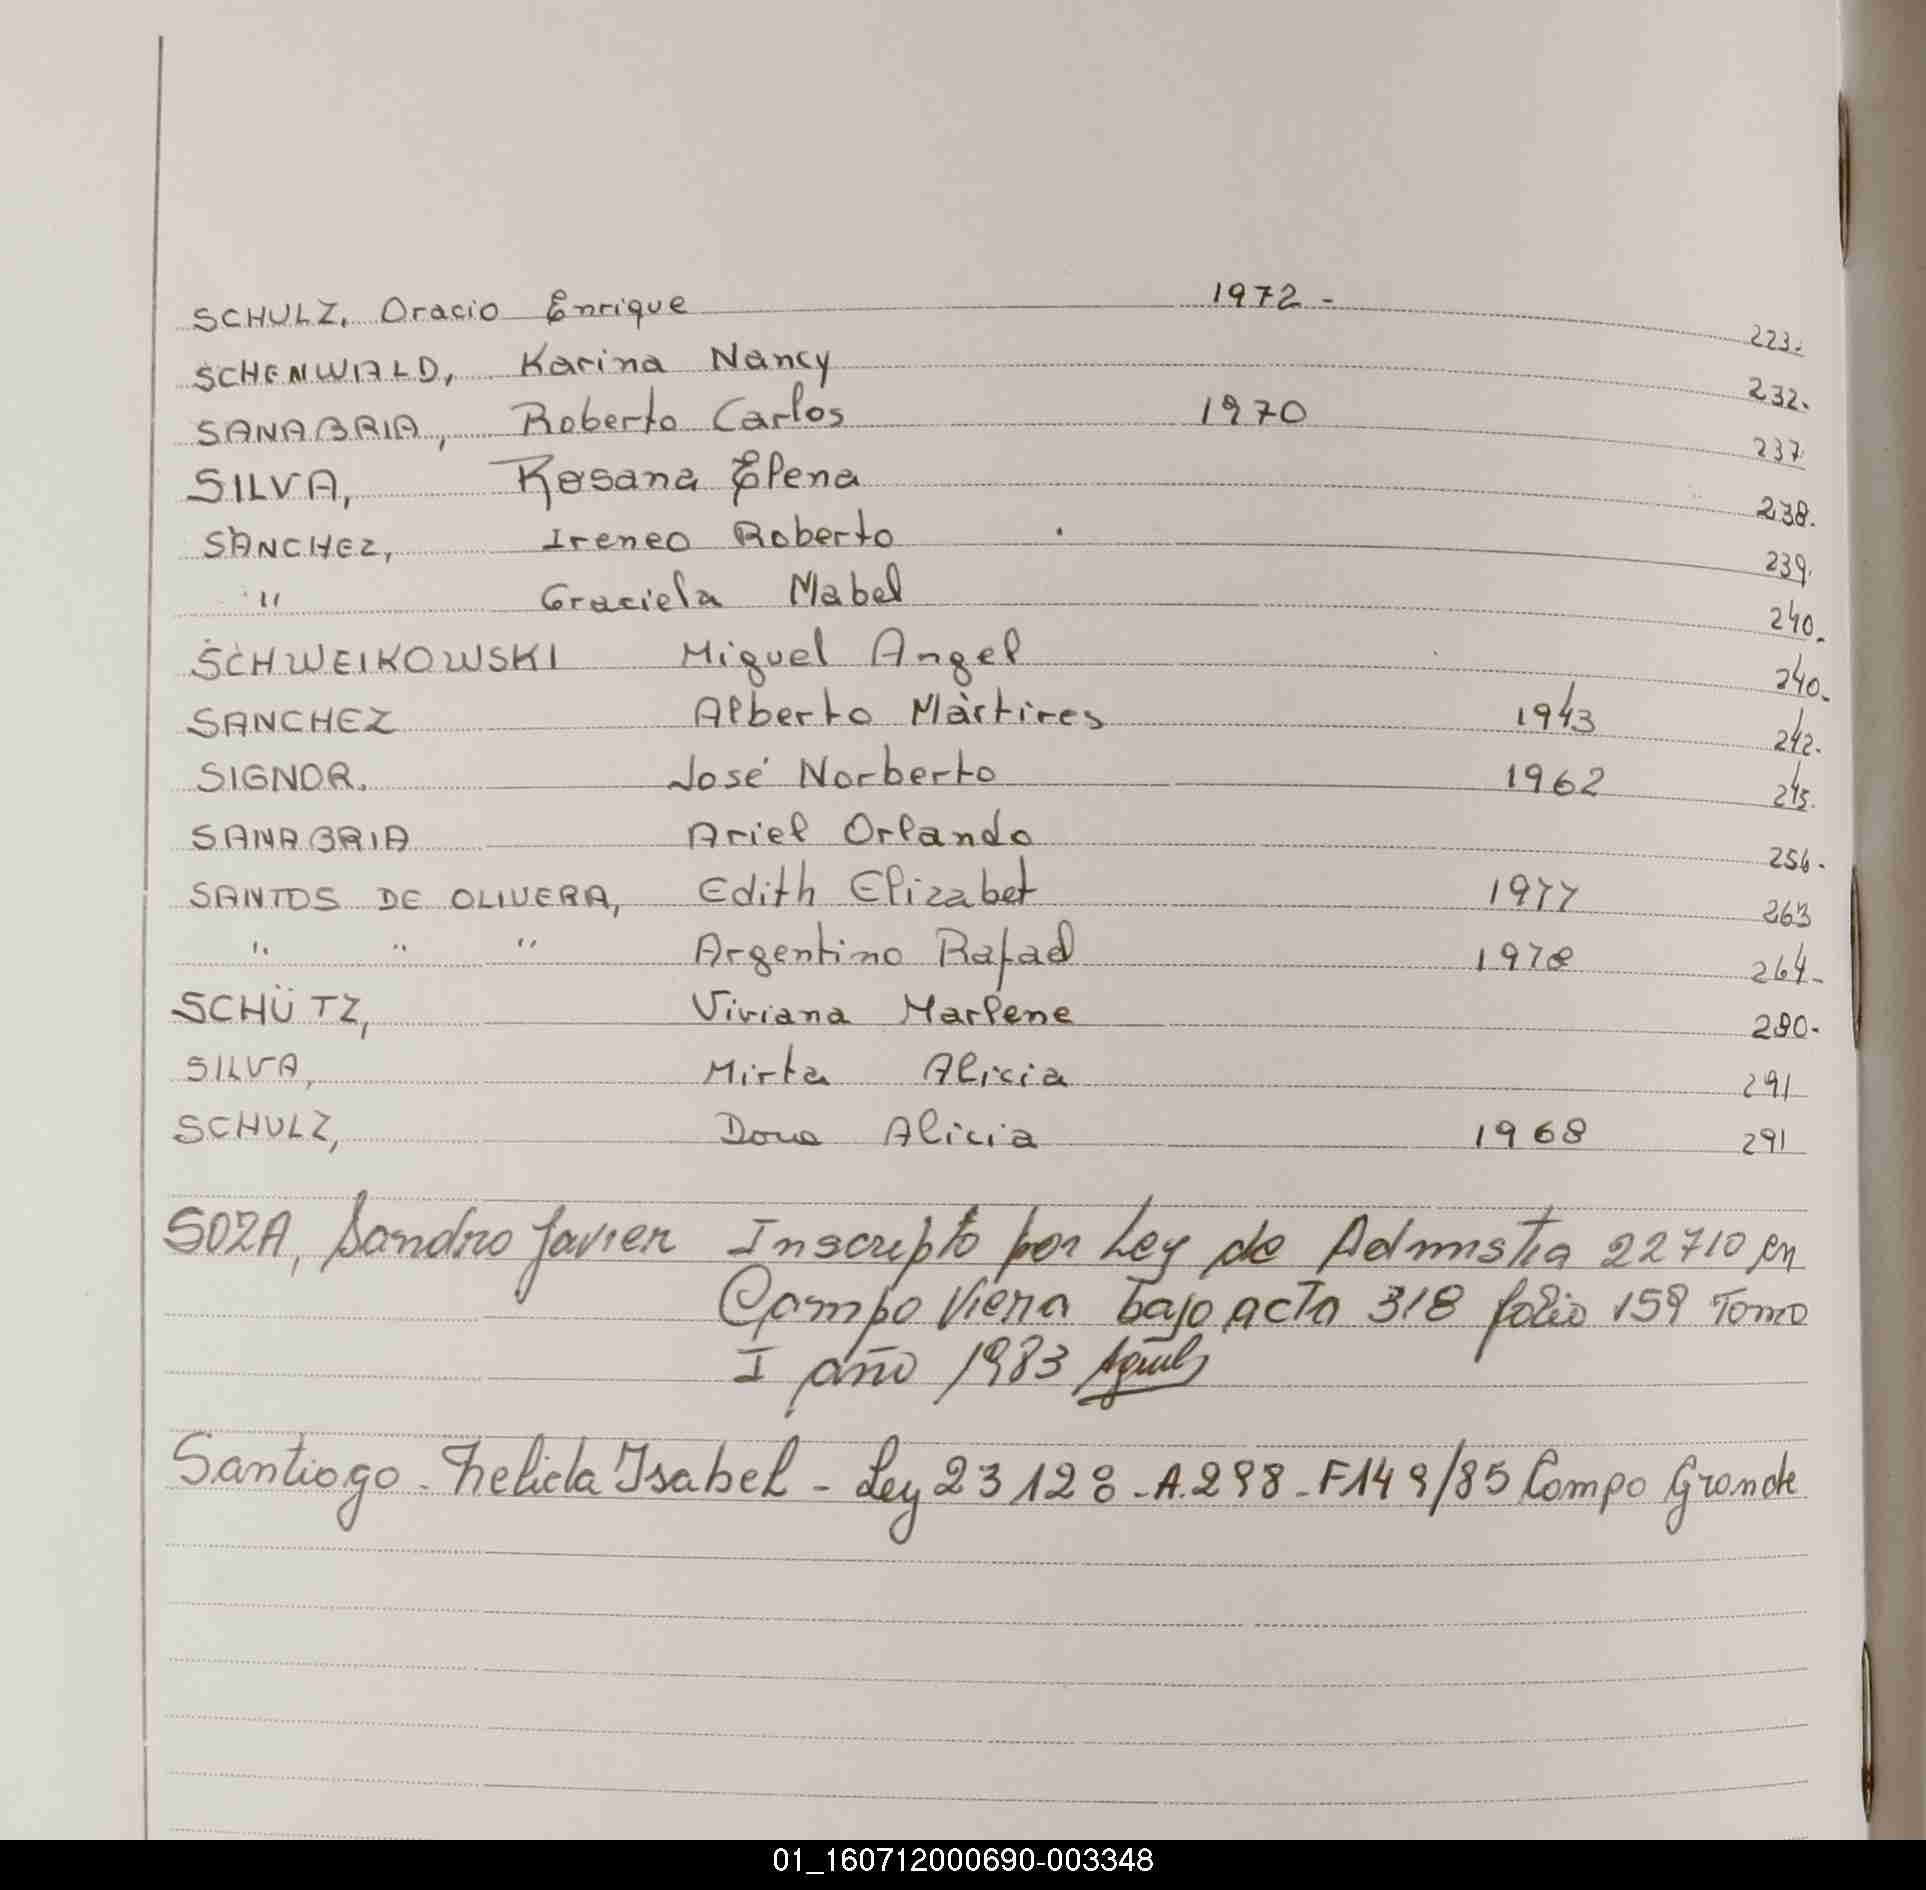 SCHULZ, Oracio Enrique 1972- 223.
SCHENWALD, Karina Nancy 232.
SANABRIA, Roberto Carlos 1970 237.
SILVA, Rosana Elena 238.
SÀNCHEZ, Ireneo Roberto 239.
" Graciela Mabel 240.
SCHWEIKOWSKI Miguel Angel 240.
SANCHEZ Alberto Màrtires 1943 242.
SIGNOR. José Norberto 1962 245.
SANABRIA Ariel Orlando 256.
SANTOS DE OLIVERA, Edith Elizabet 1977 263
" " " Argentino Rafael 1978 264-
SCHÜTZ, Viviana Marlene 290.
SILVA, Mirta Alicia 291
SCHULZ, Alicia 1968 291
SOZA, Sandro Javier Inscripto por Ley de Admistia 22710 en
Campo Viera bajo acta 318 folio 159 Tomo
I año 1983
Santiago - Felicla Isabel - Ley 23128 - A.298 - F149/85 Campo Grande
01_160712000690-003348